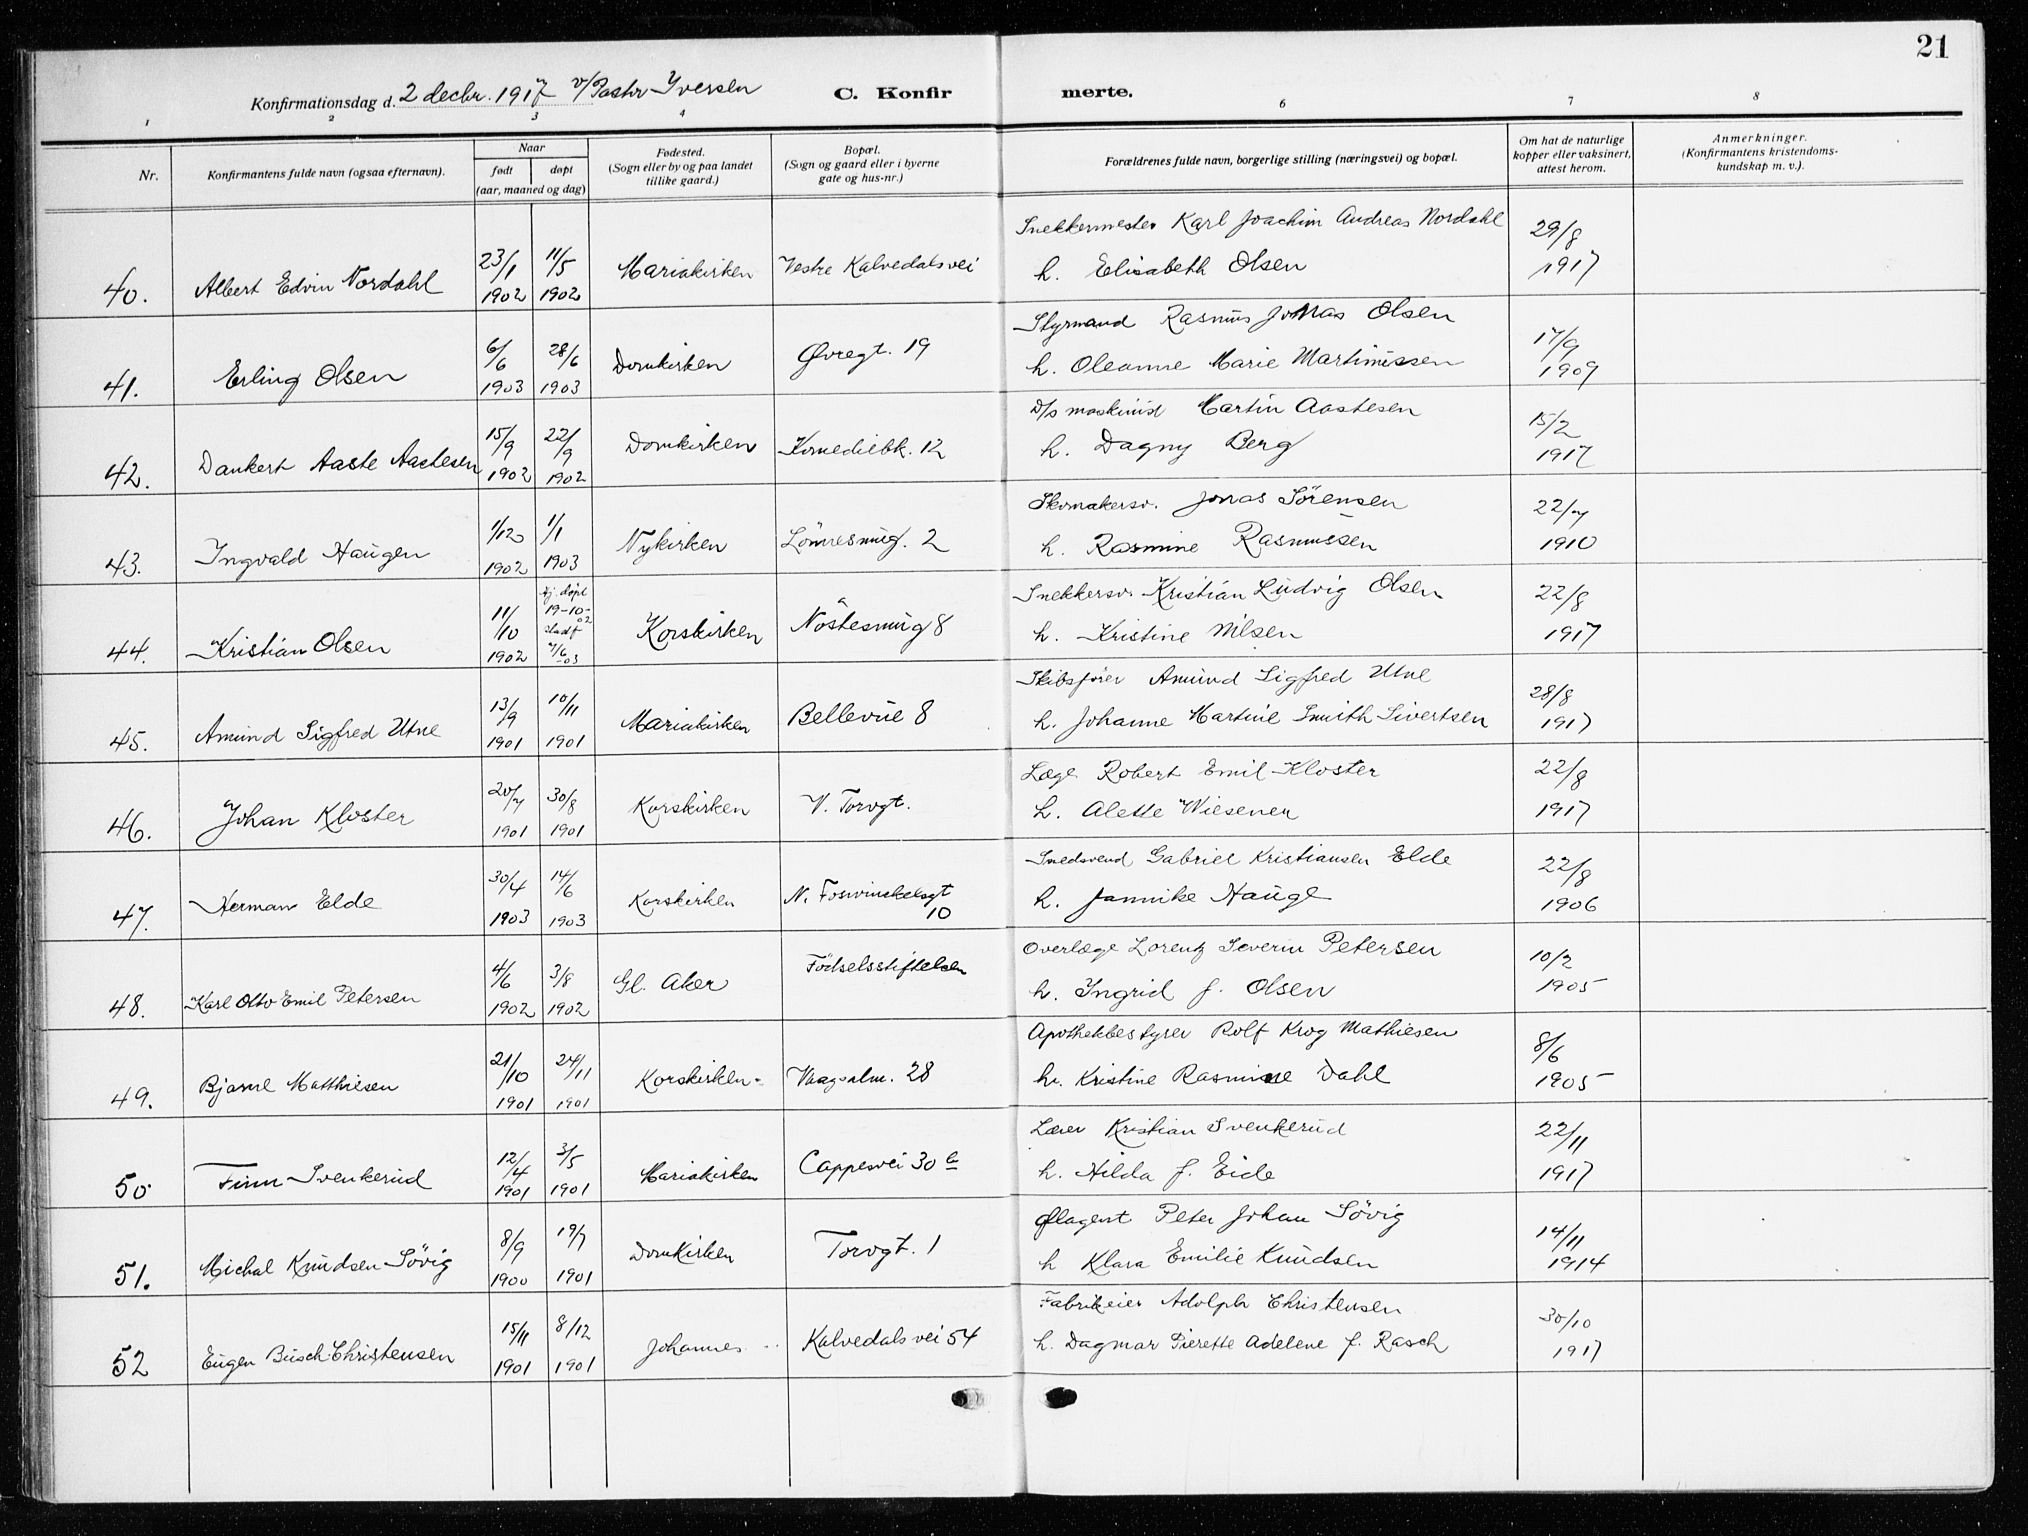 21
Konfirmationsdag d. 2 decbr. 1917 v/Pastor Iversen
C. Konfirmerte.
1 2 3 4 6 7 8
Nr.
Konfirmantens fulde navn (ogsaa efternavn).
Naar
født døpt
(aar, maaned og dag)
Fødested.
(Sogn eller by og paa landet
tillike gaard.)
Bopæl.
(Sogn og gaard eller i byerne
gate og hus-nr.)
Forældrenes fulde navn, borgerlige stilling (næringsvei) og bopæl.
Om hat de naturlige
kopper eller vaksinert,
attest herom.
Anmerkninger.
(Konfirmantens kristendoms-
kundskap m. v.).
40. Albert Edvin Nordahl 23/1 1902 11/5 1902 Mariakirken Vestre Kalvedalsvei
Snekkermester Karl Joachim Andreas Nordahl
h. Elisabeth Olsen
29/8 1917
41. Erling Olsen 6/6 1903 28/6 1903 Domkirken Øvregt. 19
Styrmand Rasmus Jonas Olsen
h. Oleanne Marie Martinussen
17/9 1909
42. Dankert Aaste Aastesen 15/9 1902 22/9 1902 Domkirken Komediebk. 12
D/s maskinist Martin Aastesen
h. Dagny Berg
15/2 1917
43. Ingvald Haugen 1/12 1902 1/1 1903 Nykirken Lönnesmug. 2
Skomakersv. Jonas Sörensen
h. Rasmine Rasmussen
22/7 1910
44. Kristian Olsen 11/10 1902 hj. döpt 19-10-02 stadf 7/6-03 Korskirken Nöstesmug 8
Snekkersv. Kristian Ludvig Olsen
h. Kristine Nilsen
22/8 1917
45. Amund Sigfred Utne 13/9 1901 10/11 1901 Mariakirken Bellevue 8
Skibsfører Amund Sigfred Utne
h. Johanne Martine Smith Sivertsen
28/8 1917
46. Johan Kloster 20/7 1901 30/8 1901 Korskirken V. Torvgt.
Læge Robert Emil Kloster
h. Alette Wiesener
22/8 1917
47. Herman Elde 30/4 1903 14/6 1903 Korskirken N. Foswinckelsgt 10
Smedsvend Gabriel Kristiansen Elde
h. Jannike Hauge
22/8 1906
48. Karl Otto Emil Petersen 4/6 1902 3/8 1902 Gl. Aker Födselsstiftelsen
Overlæge Lorentz Severin Petersen
h. Ingrid f. Olsen
10/2 1905
49. Bjarne Matthiesen 21/10 1901 24/11 1901 Korskirken Vaagsalm. 28
Apothekbestyrer Rolf Krog Mathiesen
h. Kristine Rasmine Dahl
8/6 1905
50 Finn Svenkerud 12/4 1901 3/5 1901 Mariakirken Cappesvei 30 a
Lærer Kristian Svenkerud
h. Hilda f. Eide
22/11 1917
51. Michal Knudsen Sövig 8/9 1900 19/7 1901 Domkirken Torvgt. 1
Peter Johan Sövig
h Klara Emilie Knudsen
14/11 1914
52 Eugen Busch Christensen 15/11 1901 8/12 1901 Johannes Kalvedalsvei 54
Fabrikeier Adolph Christensen
h. Dagmar Pierette Adelene f. Rasch
30/10 1917